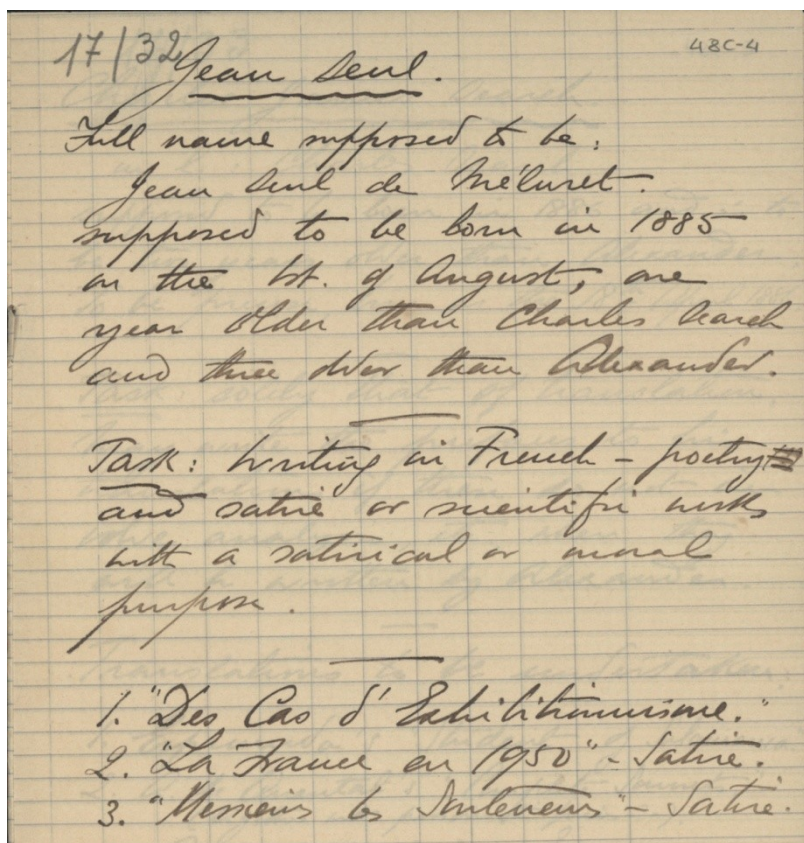 17/32
48C-4
Jean Seul.
Full name supposed to be:
Jean Seul de Méluret.
supposed to be born in 1885
on the 1st. of August, one
year older than Charles Search
and three older than Alexander.
Task: Writing in French – poetry
and satire or scientific works
with a satirical or moral
purpose.
1. "Des Cas d'Exhibitionnisme."
2. "La France en 1950" – Satire.
3. "Messieurs les Souteneurs" – Satire.